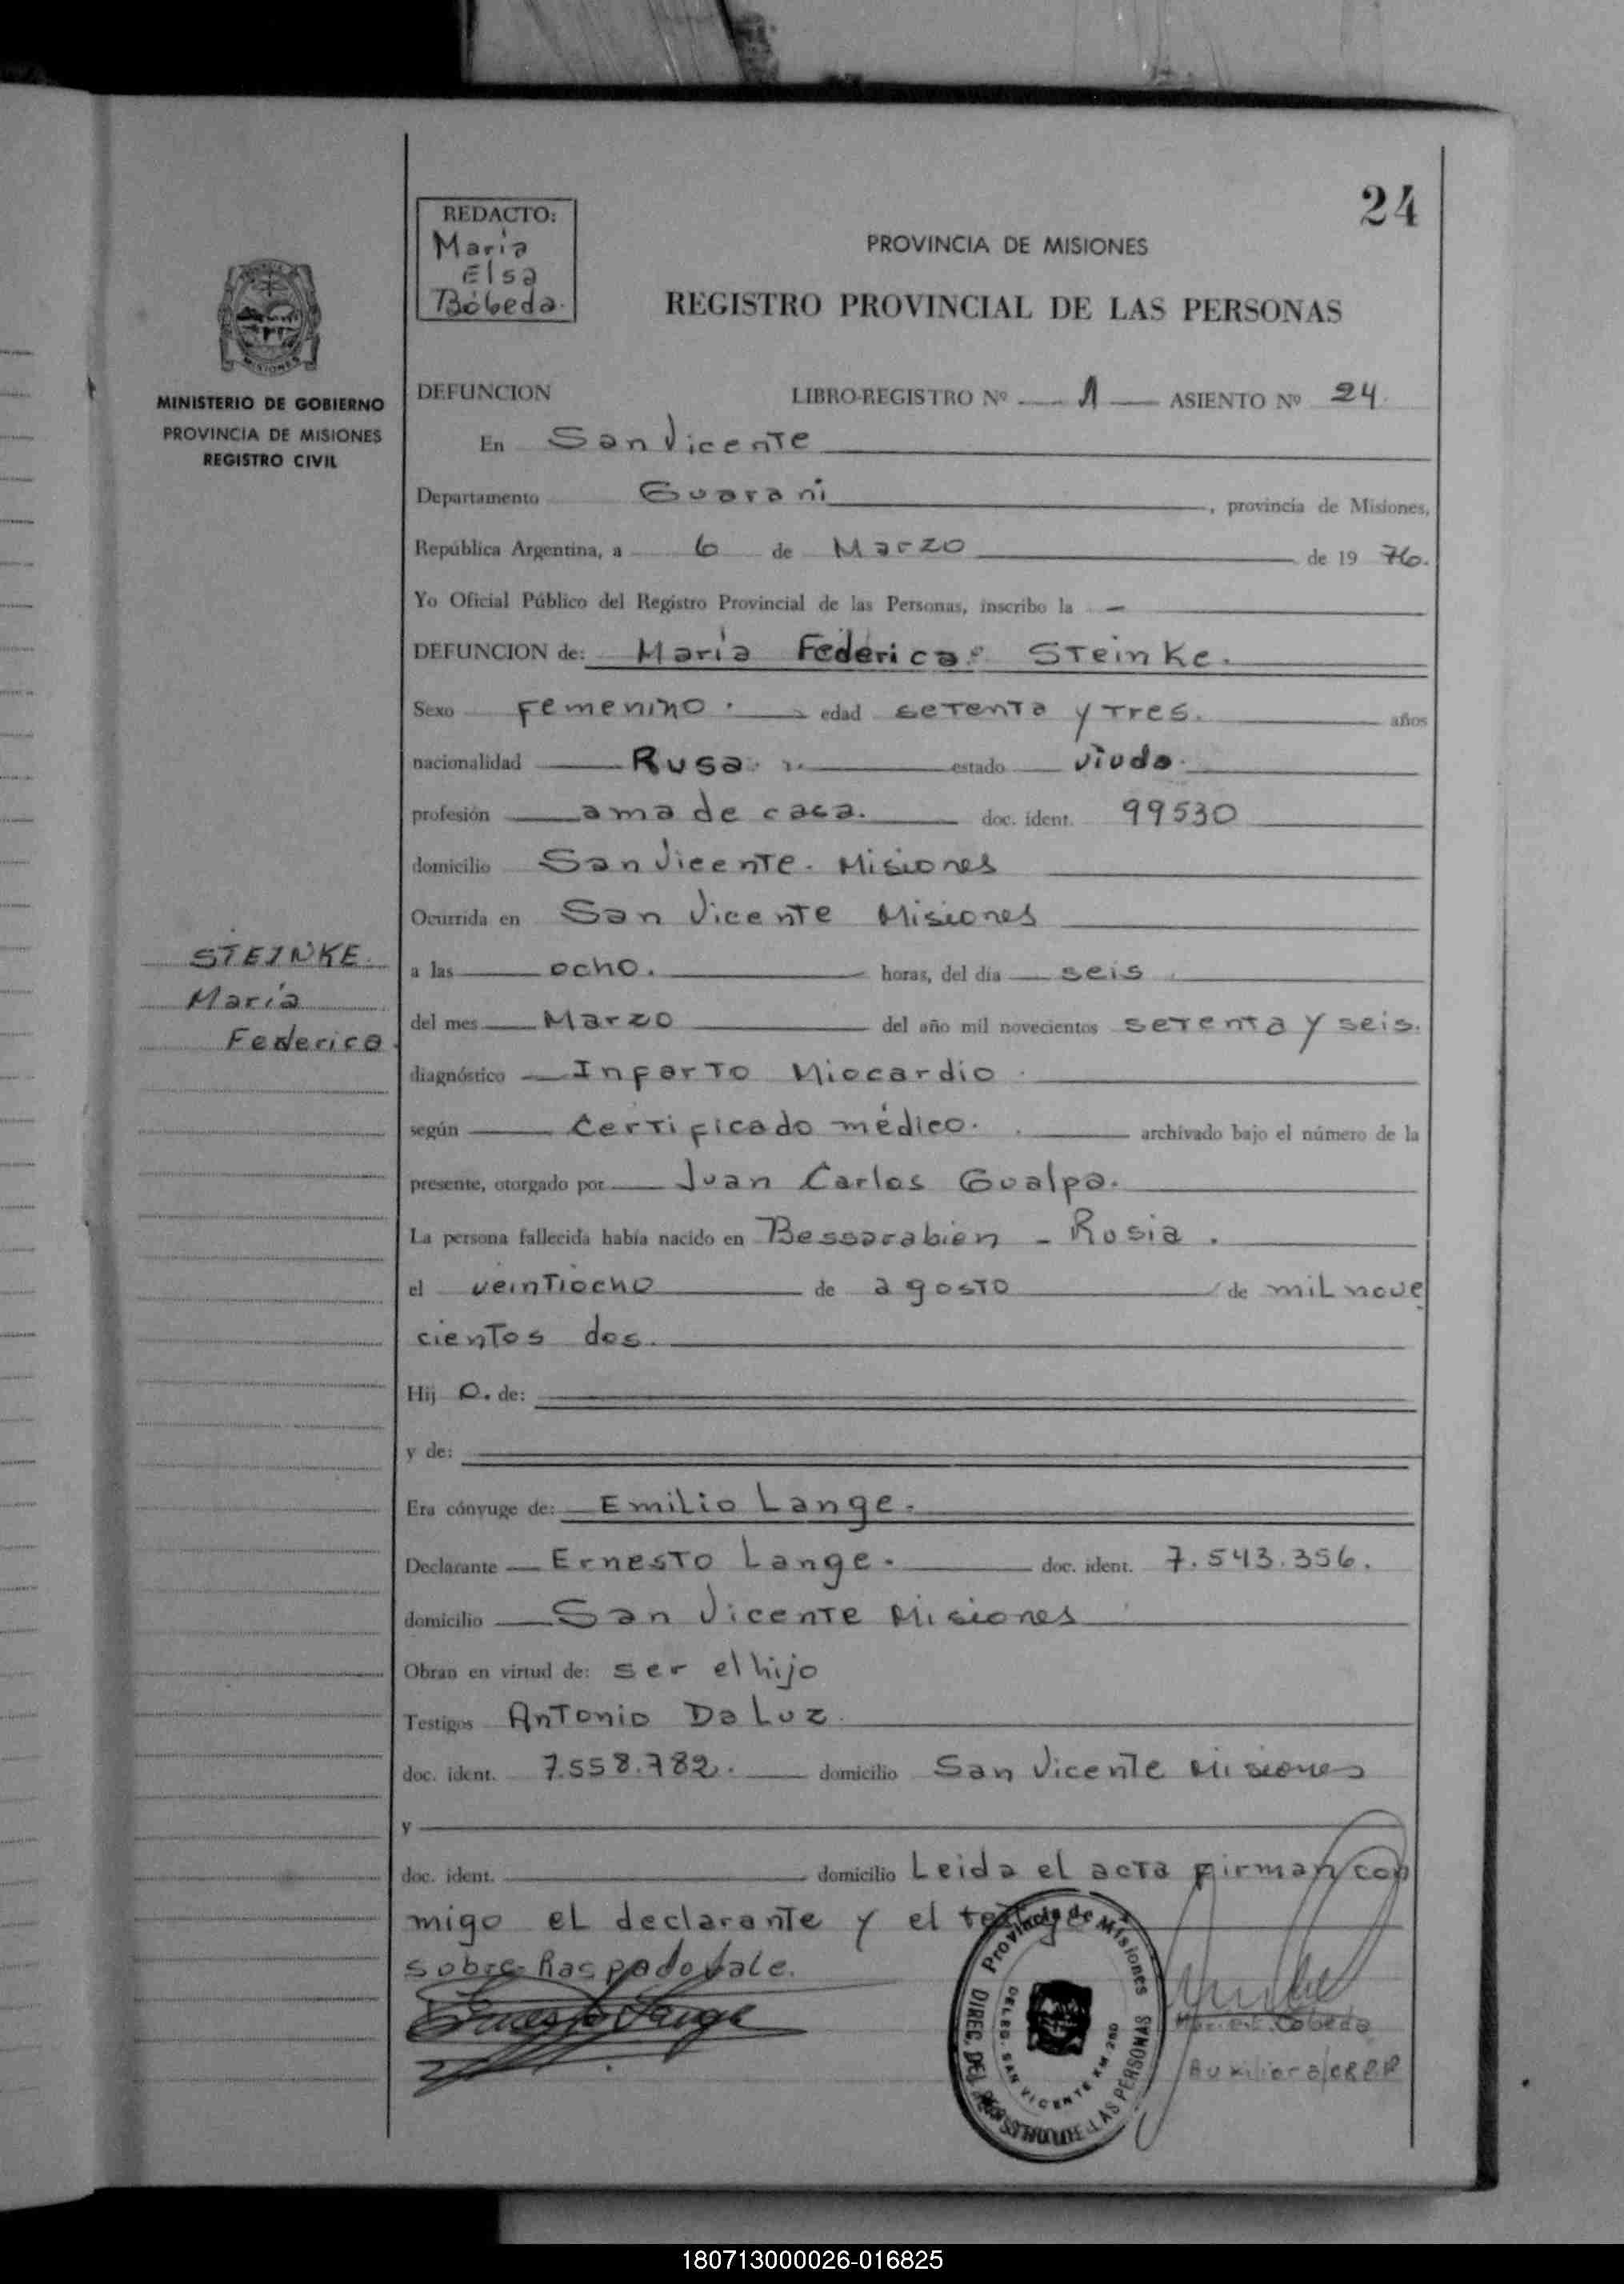 24
REDACTO:
Maria
Elsa
Bóbeda.
PROVINCIA DE MISIONES
REGISTRO PROVINCIAL DE LAS PERSONAS
MISIONES
MINISTERIO DE GOBIERNO
PROVINCIA DE MISIONES
REGISTRO CIVIL
DEFUNCION LIBRO-REGISTRO Nº 1 ASIENTO Nº 24.
En San Vicente
Departamento Guaraní, provincia de Misiones,
República Argentina, a 6 de Marzo de 19 76.
Yo Oficial Público del Registro Provincial de las Personas, inscribo la
DEFUNCION de: María Federica Steinke.
Sexo Femenino. edad setenta y tres. años
nacionalidad Rusa. estado viuda.
profesión ama de casa. doc. ident. 99530
domicilio San Vicente. Misiones
Ocurrida en San Vicente Misiones
a las ocho. horas, del día seis
del mes Marzo del año mil novecientos setenta y seis.
STEINKE.
María
Federica.
diagnóstico Infarto Miocardio.
según Certificado médico. archivado bajo el número de la
presente, otorgado por Juan Carlos Gualpa.
La persona fallecida había nacido en Bessarabien - Rusia.
el veintiocho de agosto de mil nove
cientos dos.
Hij o. de:
y de:
Era cónyuge de: Emilio Lange.
Declarante Ernesto Lange. doc. ident. 7.543.356.
domicilio San Vicente Misiones
Obran en virtud de: ser el hijo
Testigos Antonio Da Luz.
doc. ident. 7.558.782. domicilio San Vicente Misiones
y
doc. ident. domicilio Leida el acta firman con
migo el declarante y el testigo
sobre Raspado vale.
Ernesto Lange
Provincia de Misiones
DIREC. DEL REGISTRO DE LAS PERSONAS
DELEG. SAN VICENTE KM 260
Bobeda
Auxiliar
180713000026-016825